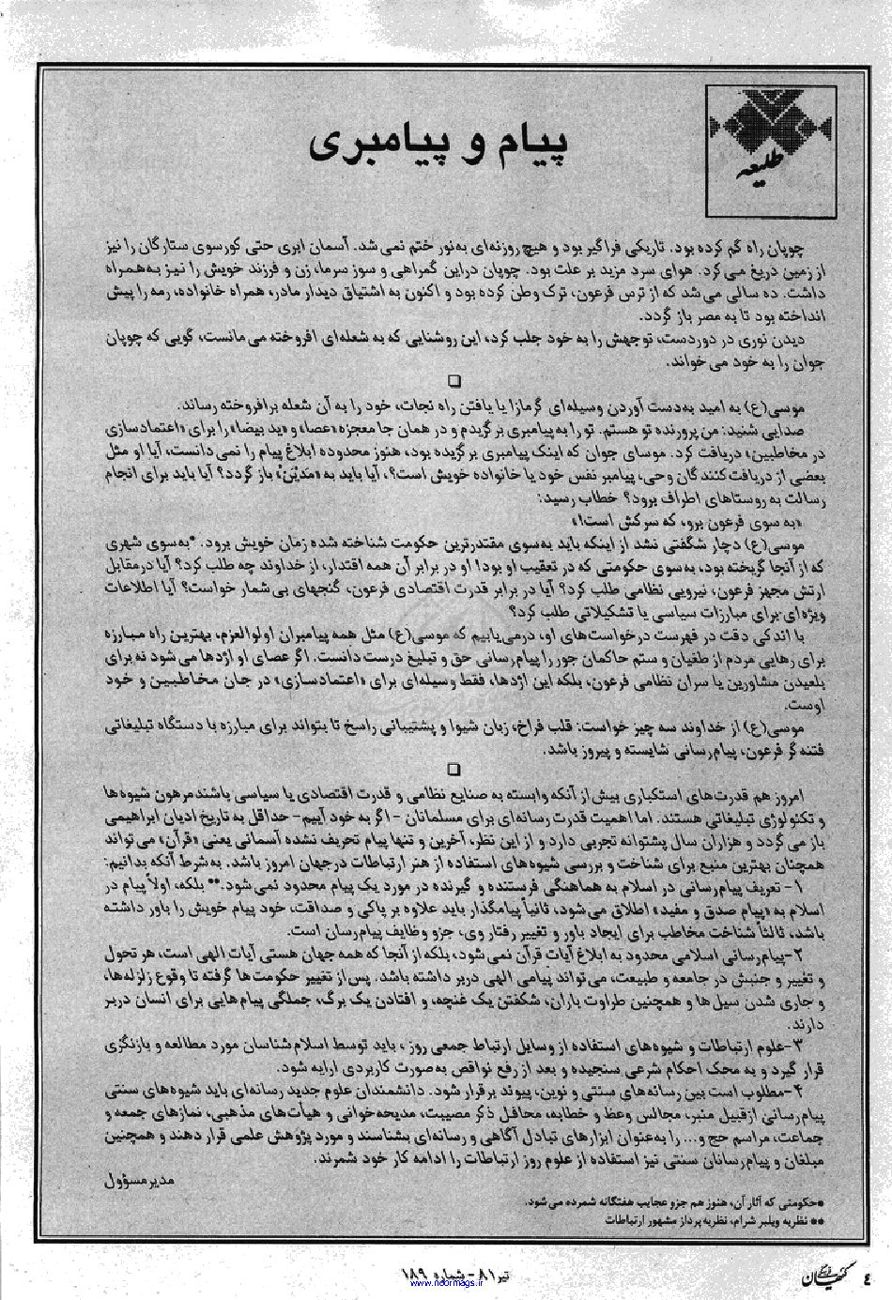 طلیعه
پیام و پیامبری
چوپان راه گم کرده بود. تاریکی فراگیر بود و هیچ روزنه‌ای به‌نور ختم نمی‌شد. آسمان ابری حتی کورسوی ستارگان را نیز
از زمین دریغ می‌کرد. هوای سرد مزید بر علت بود. چوپان دراین گمراهی و سوز سرما، زن و فرزند خویش را نیـز به‌همـراه
داشت. ده سالی می‌شد که از ترس فرعون، ترک وطن کرده بود و اکنون به اشتیاق دیدار مادر، همراه خانواده، رمه را پیش
انداخته بود تا به مصر باز گردد.
دیدن نوری در دوردست، توجهش را به خود جلب کرد، این روشنایی که به شعله‌ای افروخته می‌مانست، گویی که چوپان
جوان را به خود می‌خواند.
موسی(ع) به امید به‌دست آوردن وسیله‌ای گرمازا یا یافتن راه نجات، خود را به آن شعله برافروخته رساند.
صدایی شنید: من پرورنده تو هستم. تو را به پیامبری برگزیدم و در همان جا معجزه «عصا» و «ید بیضا» را برای «اعتمادسازی
در مخاطبین» دریافت کرد. موسای جوان که اینک پیامبری برگزیده بود، هنوز محدوده ابلاغ پیام را نمی‌دانست، آیا او مثل
بعضی از دریافت‌کنندگان وحی، پیامبر نفس خود یا خانواده خویش است؟، آیا باید به «مَدیَن» باز گردد؟ آیا باید برای انجام
رسالت به روستاهای اطراف برود؟ خطاب رسید:
«به سوی فرعون برو، که سرکش است!»
موسی(ع) دچار شگفتی نشد از اینکه باید به‌سوی مقتدرترین حکومت شناخته شده زمان خویش برود. *به‌سوی شهری
که از آنجا گریخته بود، به‌سوی حکومتی که در تعقیب او بود! او در برابر آن همه اقتدار، از خداوند چه طلب کرد؟ آیا درمقابل
ارتش مجهز فرعون، نیرویی نظامی طلب کرد؟ آیا در برابر قدرت اقتصادی فرعون، گنجهای بی‌شمار خواست؟ آیا اطلاعات
ویژه‌ای برای مبارزات سیاسی یا تشکیلاتی طلب کرد؟
با اندکی دقت در فهرست درخواست‌های او، درمی‌یابیم که موسی(ع) مثل همه پیامبران اولوالعزم، بهترین راه مبـارزه
برای رهایی مردم از طغیان و ستم حاکمان جور را پیام‌رسانی حق و تبلیغ درست دانست. اگر عصای او اژدها می‌شود نه برای
بلعیدن مشاورین یا سران نظامی فرعون، بلکه این اژدها، فقط وسیله‌ای برای «اعتمادسازی» در جان مخاطبین و خود
اوست.
موسی(ع) از خداوند سه چیز خواست: قلب فراخ، زبان شیوا و پشتیبانی راسخ تا بتواند برای مبارزه با دستگاه تبلیغاتی
فتنه‌گر فرعون، پیام‌رسانی شایسته و پیروز باشد.
امروز هم قدرت‌های استکباری بیش از آنکه وابسته به صنایع نظامی و قدرت اقتصادی یا سیاسی باشندمرهون شیوه‌ها
و تکنولوژی تبلیغاتی هستند. اما اهمیت قدرت رسانه‌ای برای مسلمانان -اگر به خود آییم- حداقل به تاریخ ادیان ابراهیمی
باز می‌گردد و هزاران سال پشتوانه تجربی دارد و از این نظر، آخرین و تنها پیام تحریف نشده آسمانی یعنی «قرآن» می‌تواند
همچنان بهترین منبع برای شناخت و بررسی شیوه‌های استفاده از هنر ارتباطات درجهان امروز باشد. به‌شرط آنکه بدانیم:
۱- تعریف پیام‌رسانی در اسلام به هماهنگی فرستنده و گیرنده در مورد یک پیام محدود نمی‌شود.** بلکه، اولاً پیام در
اسلام به «پیام صدق و مفید» اطلاق می‌شود، ثانیاً پیامگذار باید علاوه بر پاکی و صداقت، خود پیام خویش را باور داشته
باشد، ثالثاً شناخت مخاطب برای ایجاد باور و تغییر رفتار وی، جزو وظایف پیام‌رسان است.
۲-پیام‌رسانی اسلامی محدود به ابلاغ آیات قرآن نمی‌شود، بلکه از آنجا که همه جهان هستی آیات الهی است، هر تحول
و تغییر و جنبش در جامعه و طبیعت، می‌تواند پیامی الهی دربر داشته باشد. پس‌از تغییر حکومت‌ها گرفته تا وقوع زلزله‌ها،
و جاری شدن سیل‌ها و همچنین طراوت باران، شکفتن یک غنچه، و افتادن یک برگ، جملگی پیام‌هایی برای انسان دربر
دارند.
۳-علوم ارتباطات و شیوه‌های استفاده از وسایل ارتباط جمعی روز، باید توسط اسلام‌شناسان مورد مطالعه و بازنگری
قرار گیرد و به محک احکام شرعی سنجیده و بعد از رفع نواقص به‌صورت کاربردی ارایه شود.
۴-مطلوب است بین رسانه‌های سنتی و نوین، پیوند برقرار شود. دانشمندان علوم جدید رسانه‌ای باید شیوه‌های سنتی
پیام‌رسانی ازقبیل منبر، مجالس وعظ و خطابه، محافل ذکر مصیبت، مدیحه‌خوانی و هیأت‌های مذهبی، نمازهای جمعه و
جماعت، مراسم حج و... را به‌عنوان ابزارهای تبادل آگاهی و رسانه‌ای بشناسند و مورد پژوهش علمی قرار دهند و همچنین
مبلغان و پیام‌رسانان سنتی نیز استفاده از علوم روز ارتباطات را ادامه کار خود شمرند.
مدیرمسؤول
*حکومتی که آثار آن، هنوز هم جزو عجایب هفتگانه شمرده می‌شود.
** نظریه ویلبر شرام، نظریه پرداز مشهور ارتباطات
٤ کیهان فرهنگی
تیر ۸۱- شماره ۱۸۹
www.noormags.ir